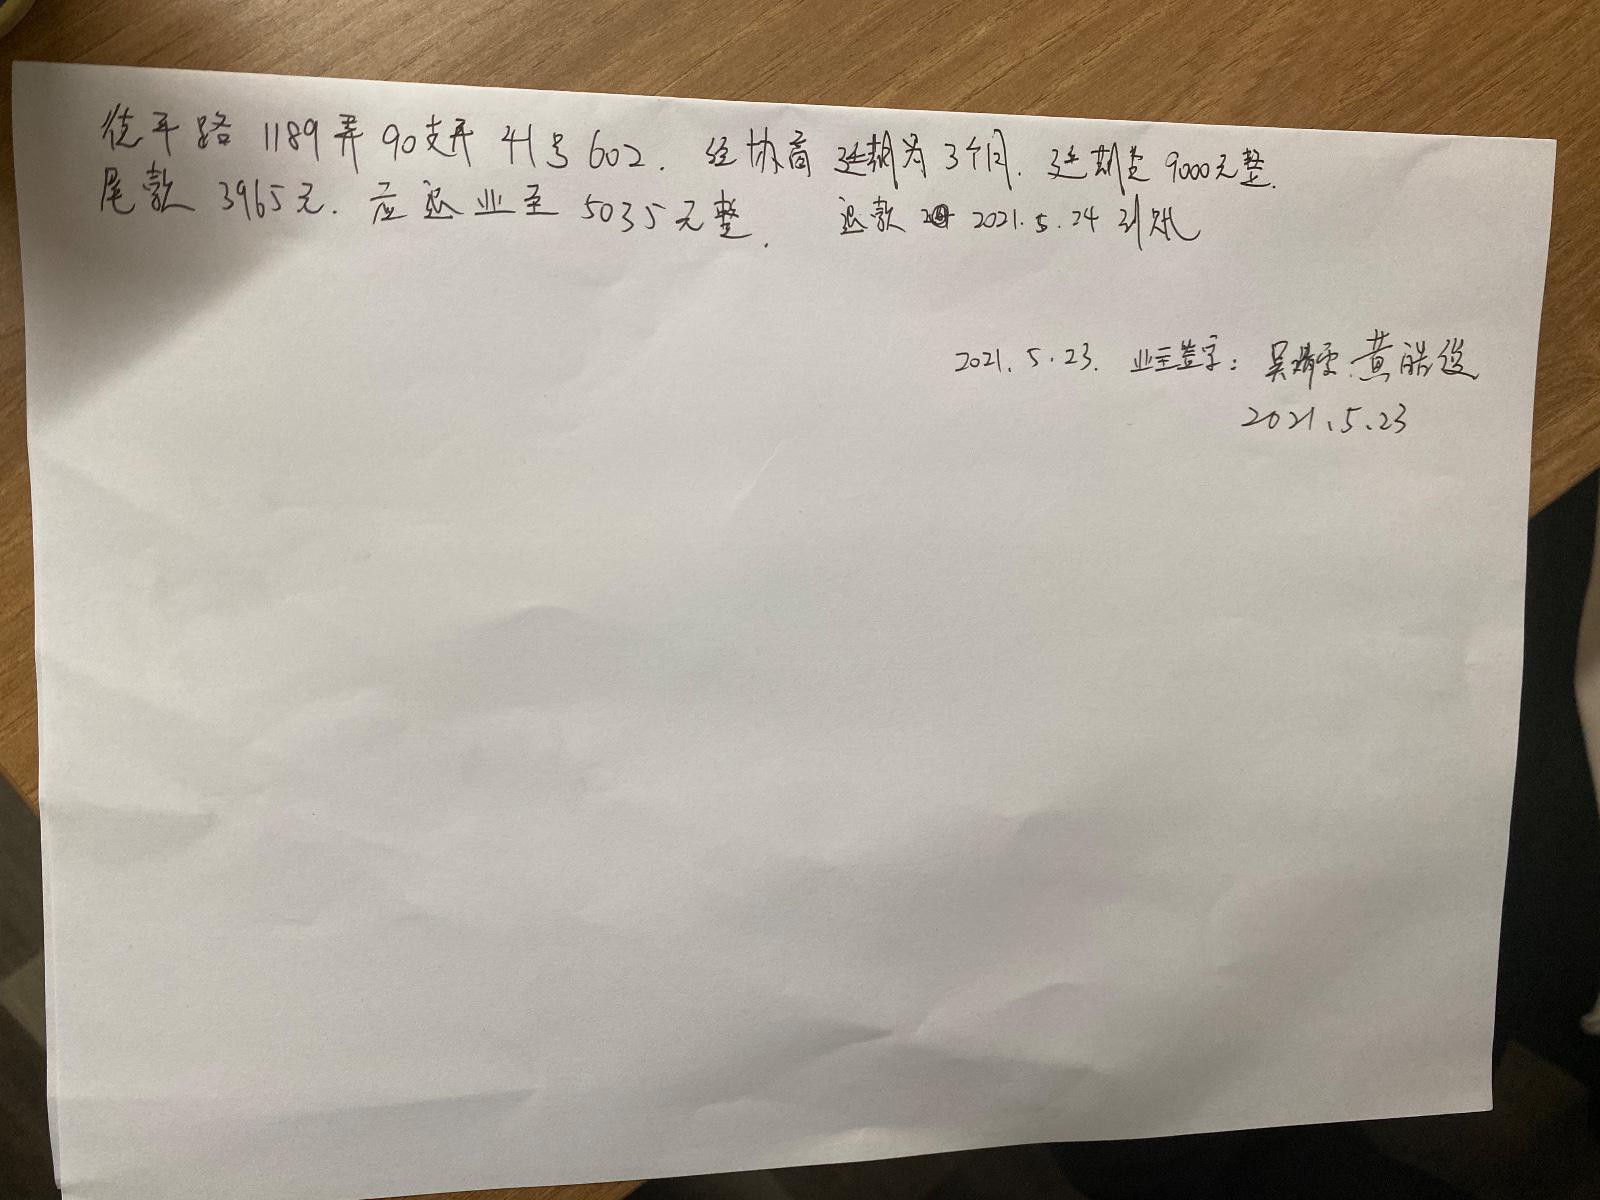 德平路 1189弄 90支弄 41号 602. 经协商 延期为 3个月. 延期是 9000元整.
尾款 3965元. 应退业主 5035元整. 退款 2021.5.24 到账
2021.5.23. 业主签字: 吴 黄皓俊
2021.5.23